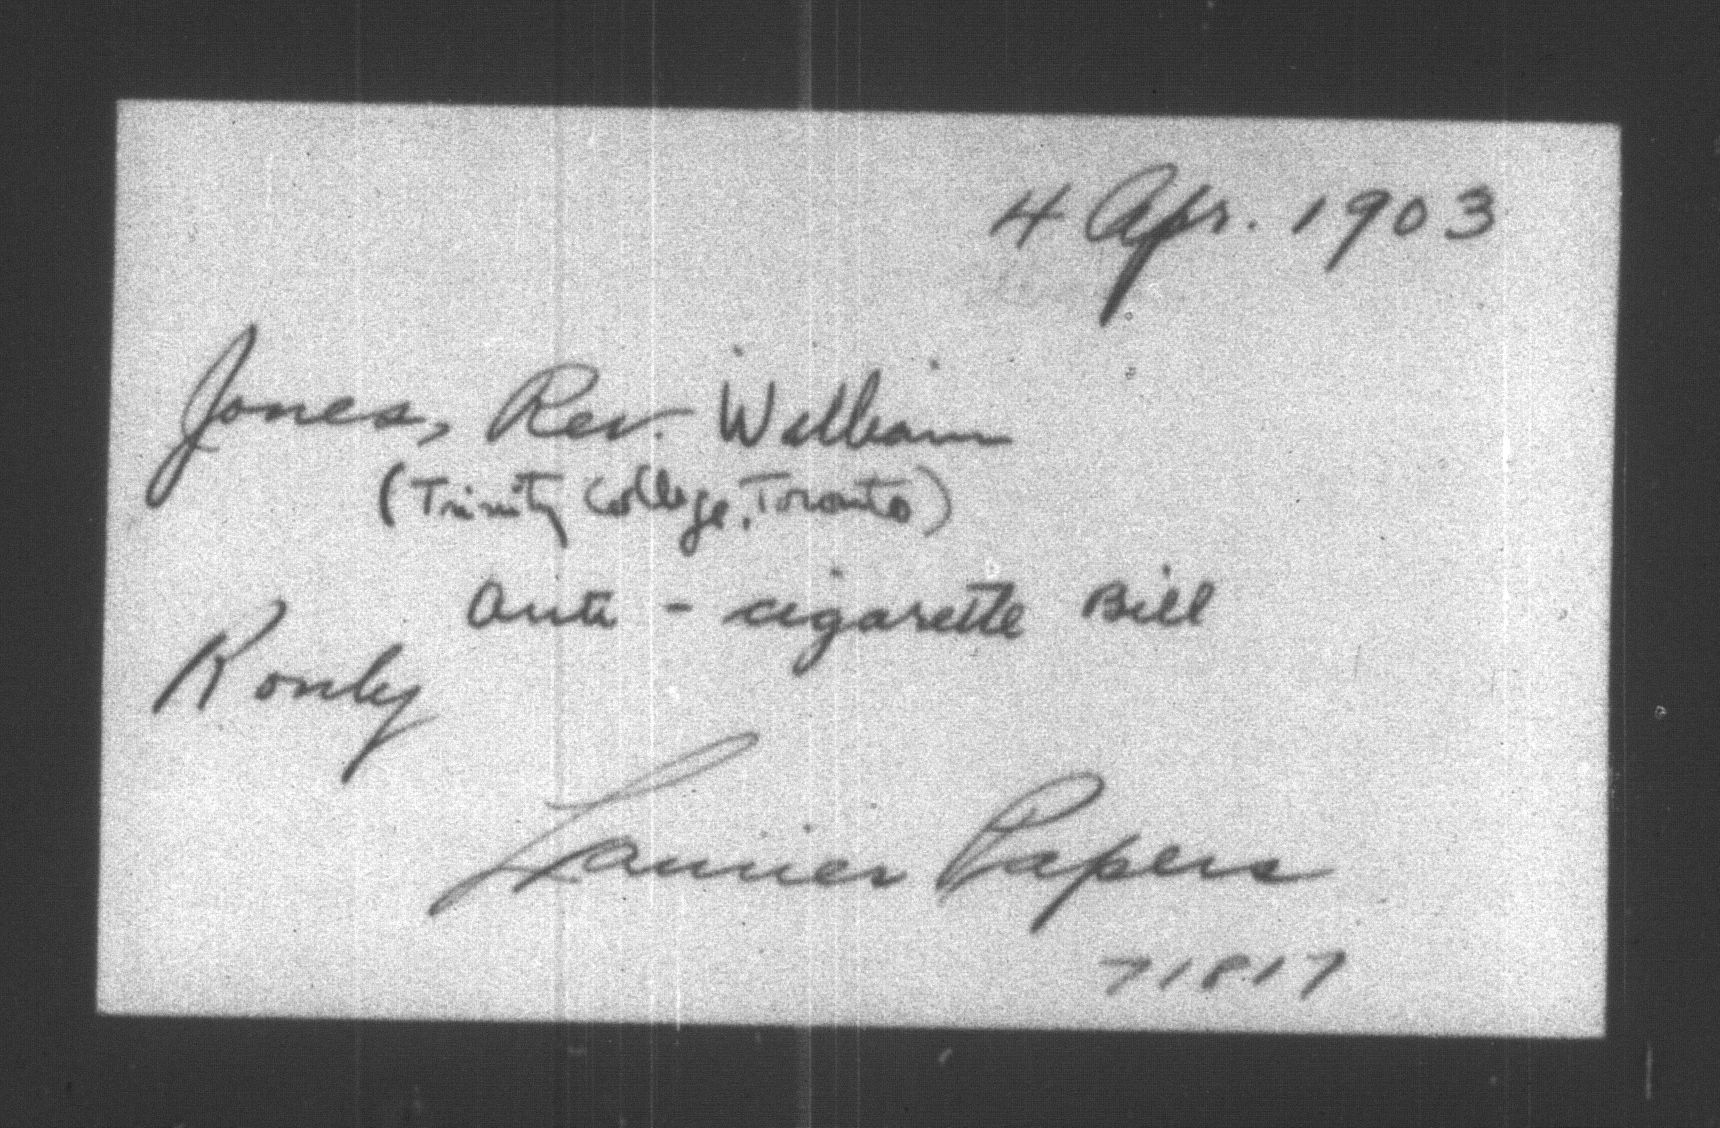 4 Apr. 1903
Jones, Rev. William
(Trinity College, Toronto)
Anti - cigarette Bill
R only
Laurier Papers
71817